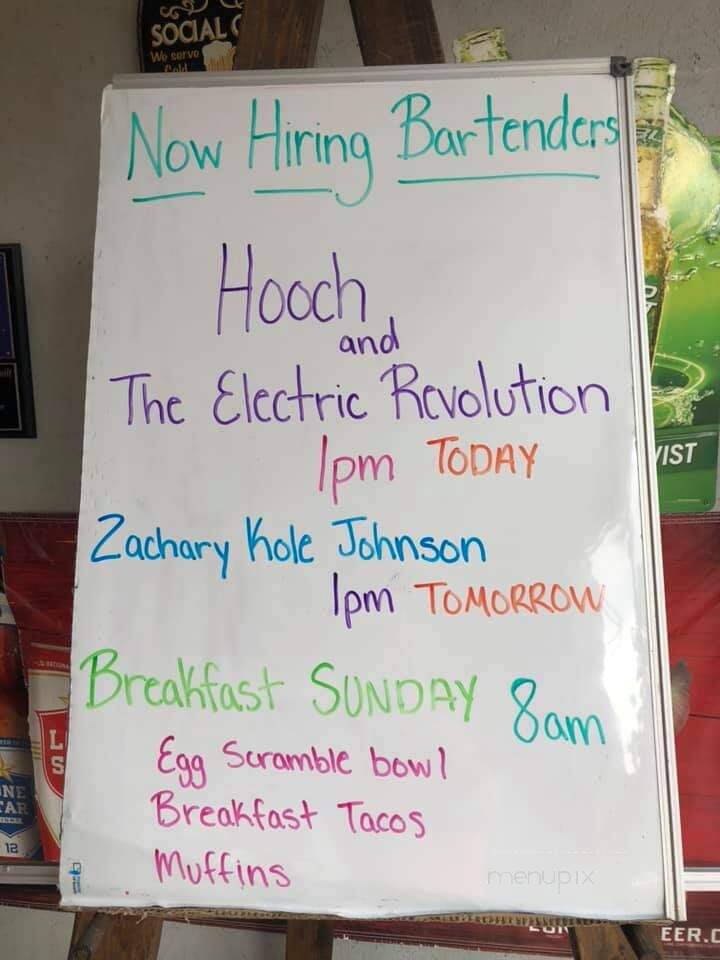 SOCIAL
We serve
Cold
Now Hiring Bartenders
Hooch
and
The Electric Revolution
1pm TODAY
Zachary Kole Johnson
1pm TOMORROW
Breakfast SUNDAY 8am
Egg Scramble bowl
Breakfast Tacos
Muffins
menupix